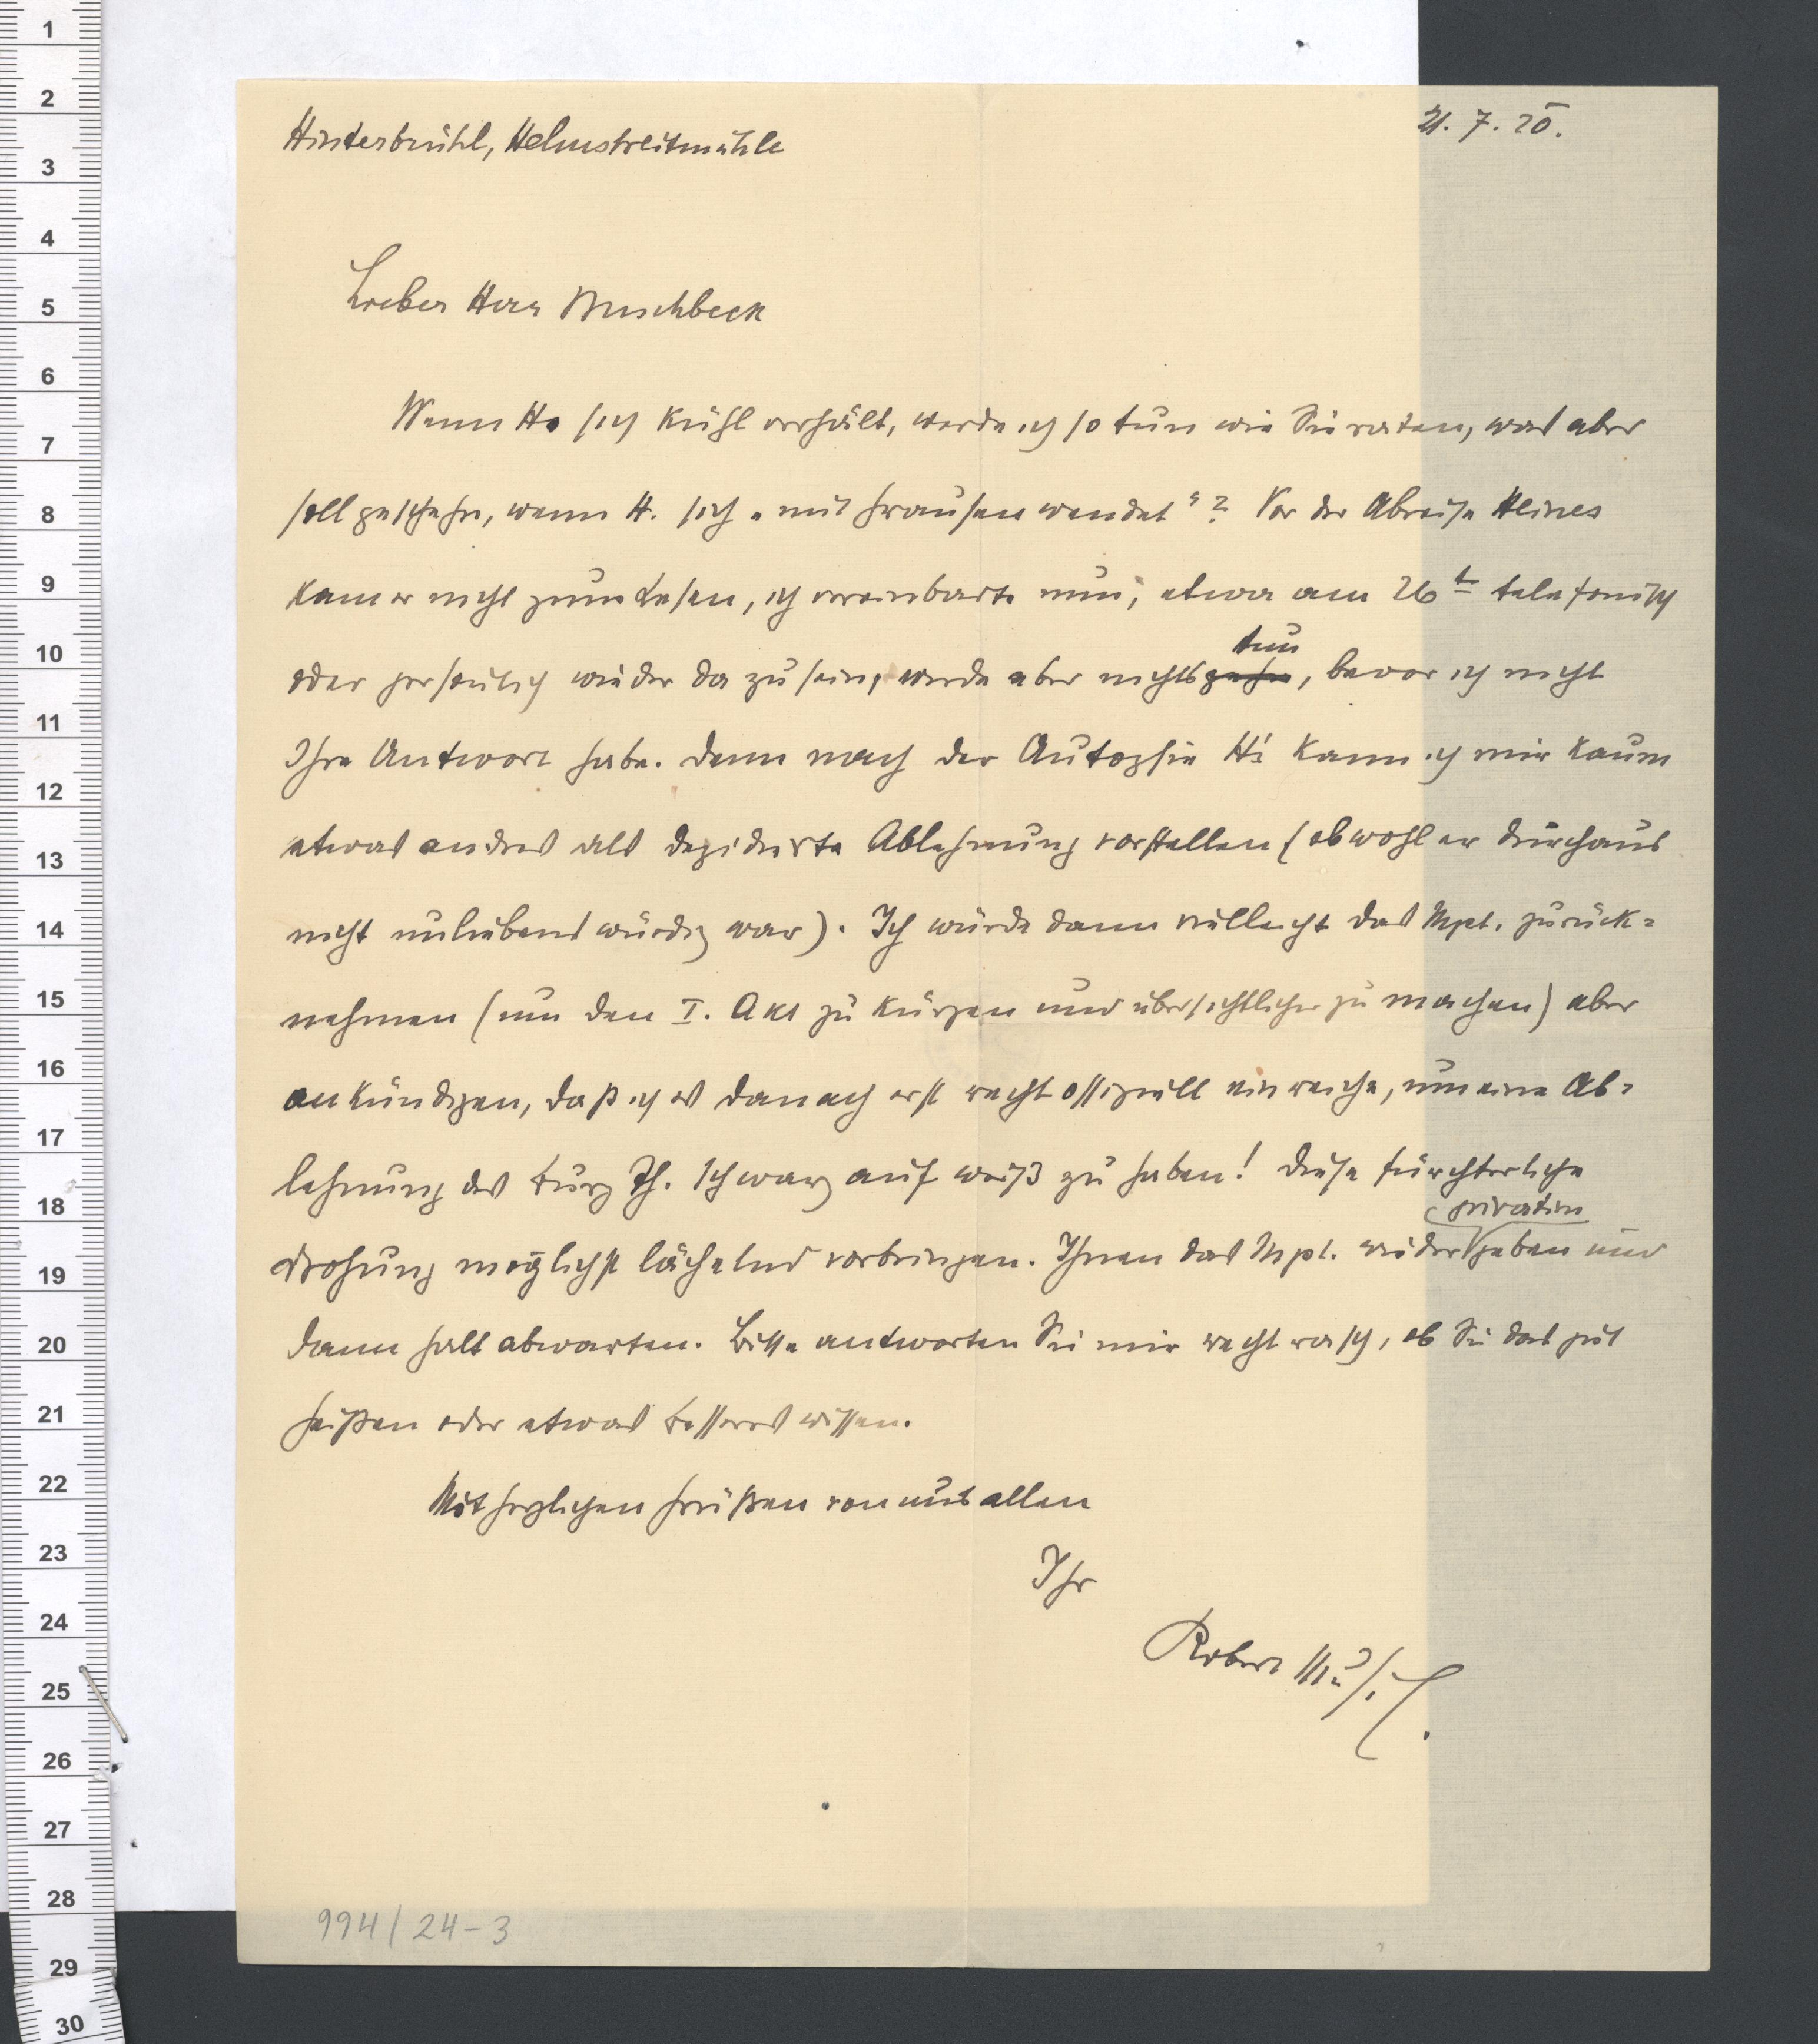 Hinterbrühl, Helmstreitmühle
21. 7. 20.
Lieber Herr Buschbeck
Wenn H. sich kühl verhält, werde ich so tun wie Sie raten, was aber
soll geschehn, wenn H. sich „mit Grausen wendet"? Vor der Abreise Heines
kam er nicht zum Lesen, ich vereinbarte nun, etwa am 26t telefonisch
oder persönlich wieder da zu sein, werde aber nichts tun, bevor ich nicht
Ihre Antwort habe. Denn nach der Autopsie H's kann ich mir kaum
etwas andres als dezidierte Ablehnung vorstellen (obwohl er durchaus
nicht unliebenswürdig war). Ich würde dann vielleicht das Mpt. zurück=
nehmen (um den I. Akt zu kürzen und übersichtlicher zu machen) aber
ankündigen, daß ich es danach erst recht offiziell einreiche, um eine Ab=
lehnung des Burg Th. schwarz auf weiß zu haben! Diese fürchterliche
Drohung möglichst lächelnd vorbringen. Ihnen das Mpt. wieder privatim geben und
dann halt abwarten. Bitte antworten Sie mir recht rasch, ob Sie das gut
heißen oder etwas Besseres wissen.
Mit herzlichen Grüßen von uns allen
Ihr
Robert Musil.
994/24-3
1
2
3
4
5
6
7
8
9
10
11
12
13
14
15
16
17
18
19
20
21
22
23
24
25
26
27
28
29
30